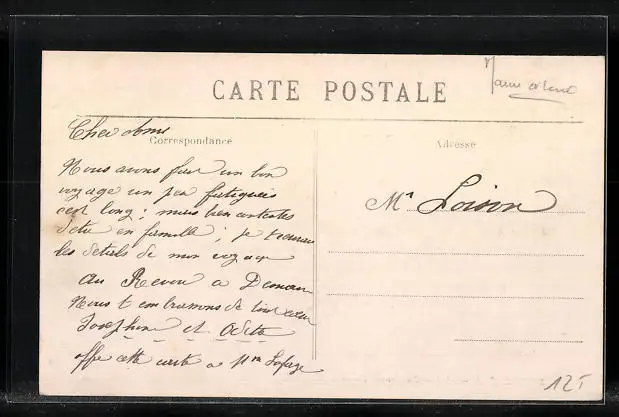 CARTE POSTALE
Cher Ami
Correspondance
Adresse
Nous avons fait un bon
voyage un peu fatigués
c'est long; mais bien contentes
en famille; je
les détails de mon voyage
au Revoir a Demain
Nous t embrassons de tout cœur
Josephine et Odette
offre cette carte a Mme Lafage
Mr Loison
125